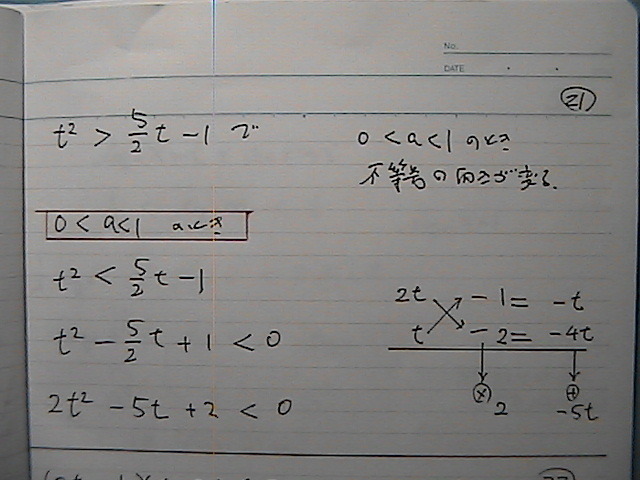 No.
DATE
21
t² > 5/2 t − 1 で
0 < a < 1 のとき
不等号の向きが変る.
0 < a < 1 のとき
t² < 5/2 t − 1
t² − 5/2 t + 1 < 0
2t² − 5t + 2 < 0
2t − 1 = −t
t − 2 = −4t
× +
2 −5t